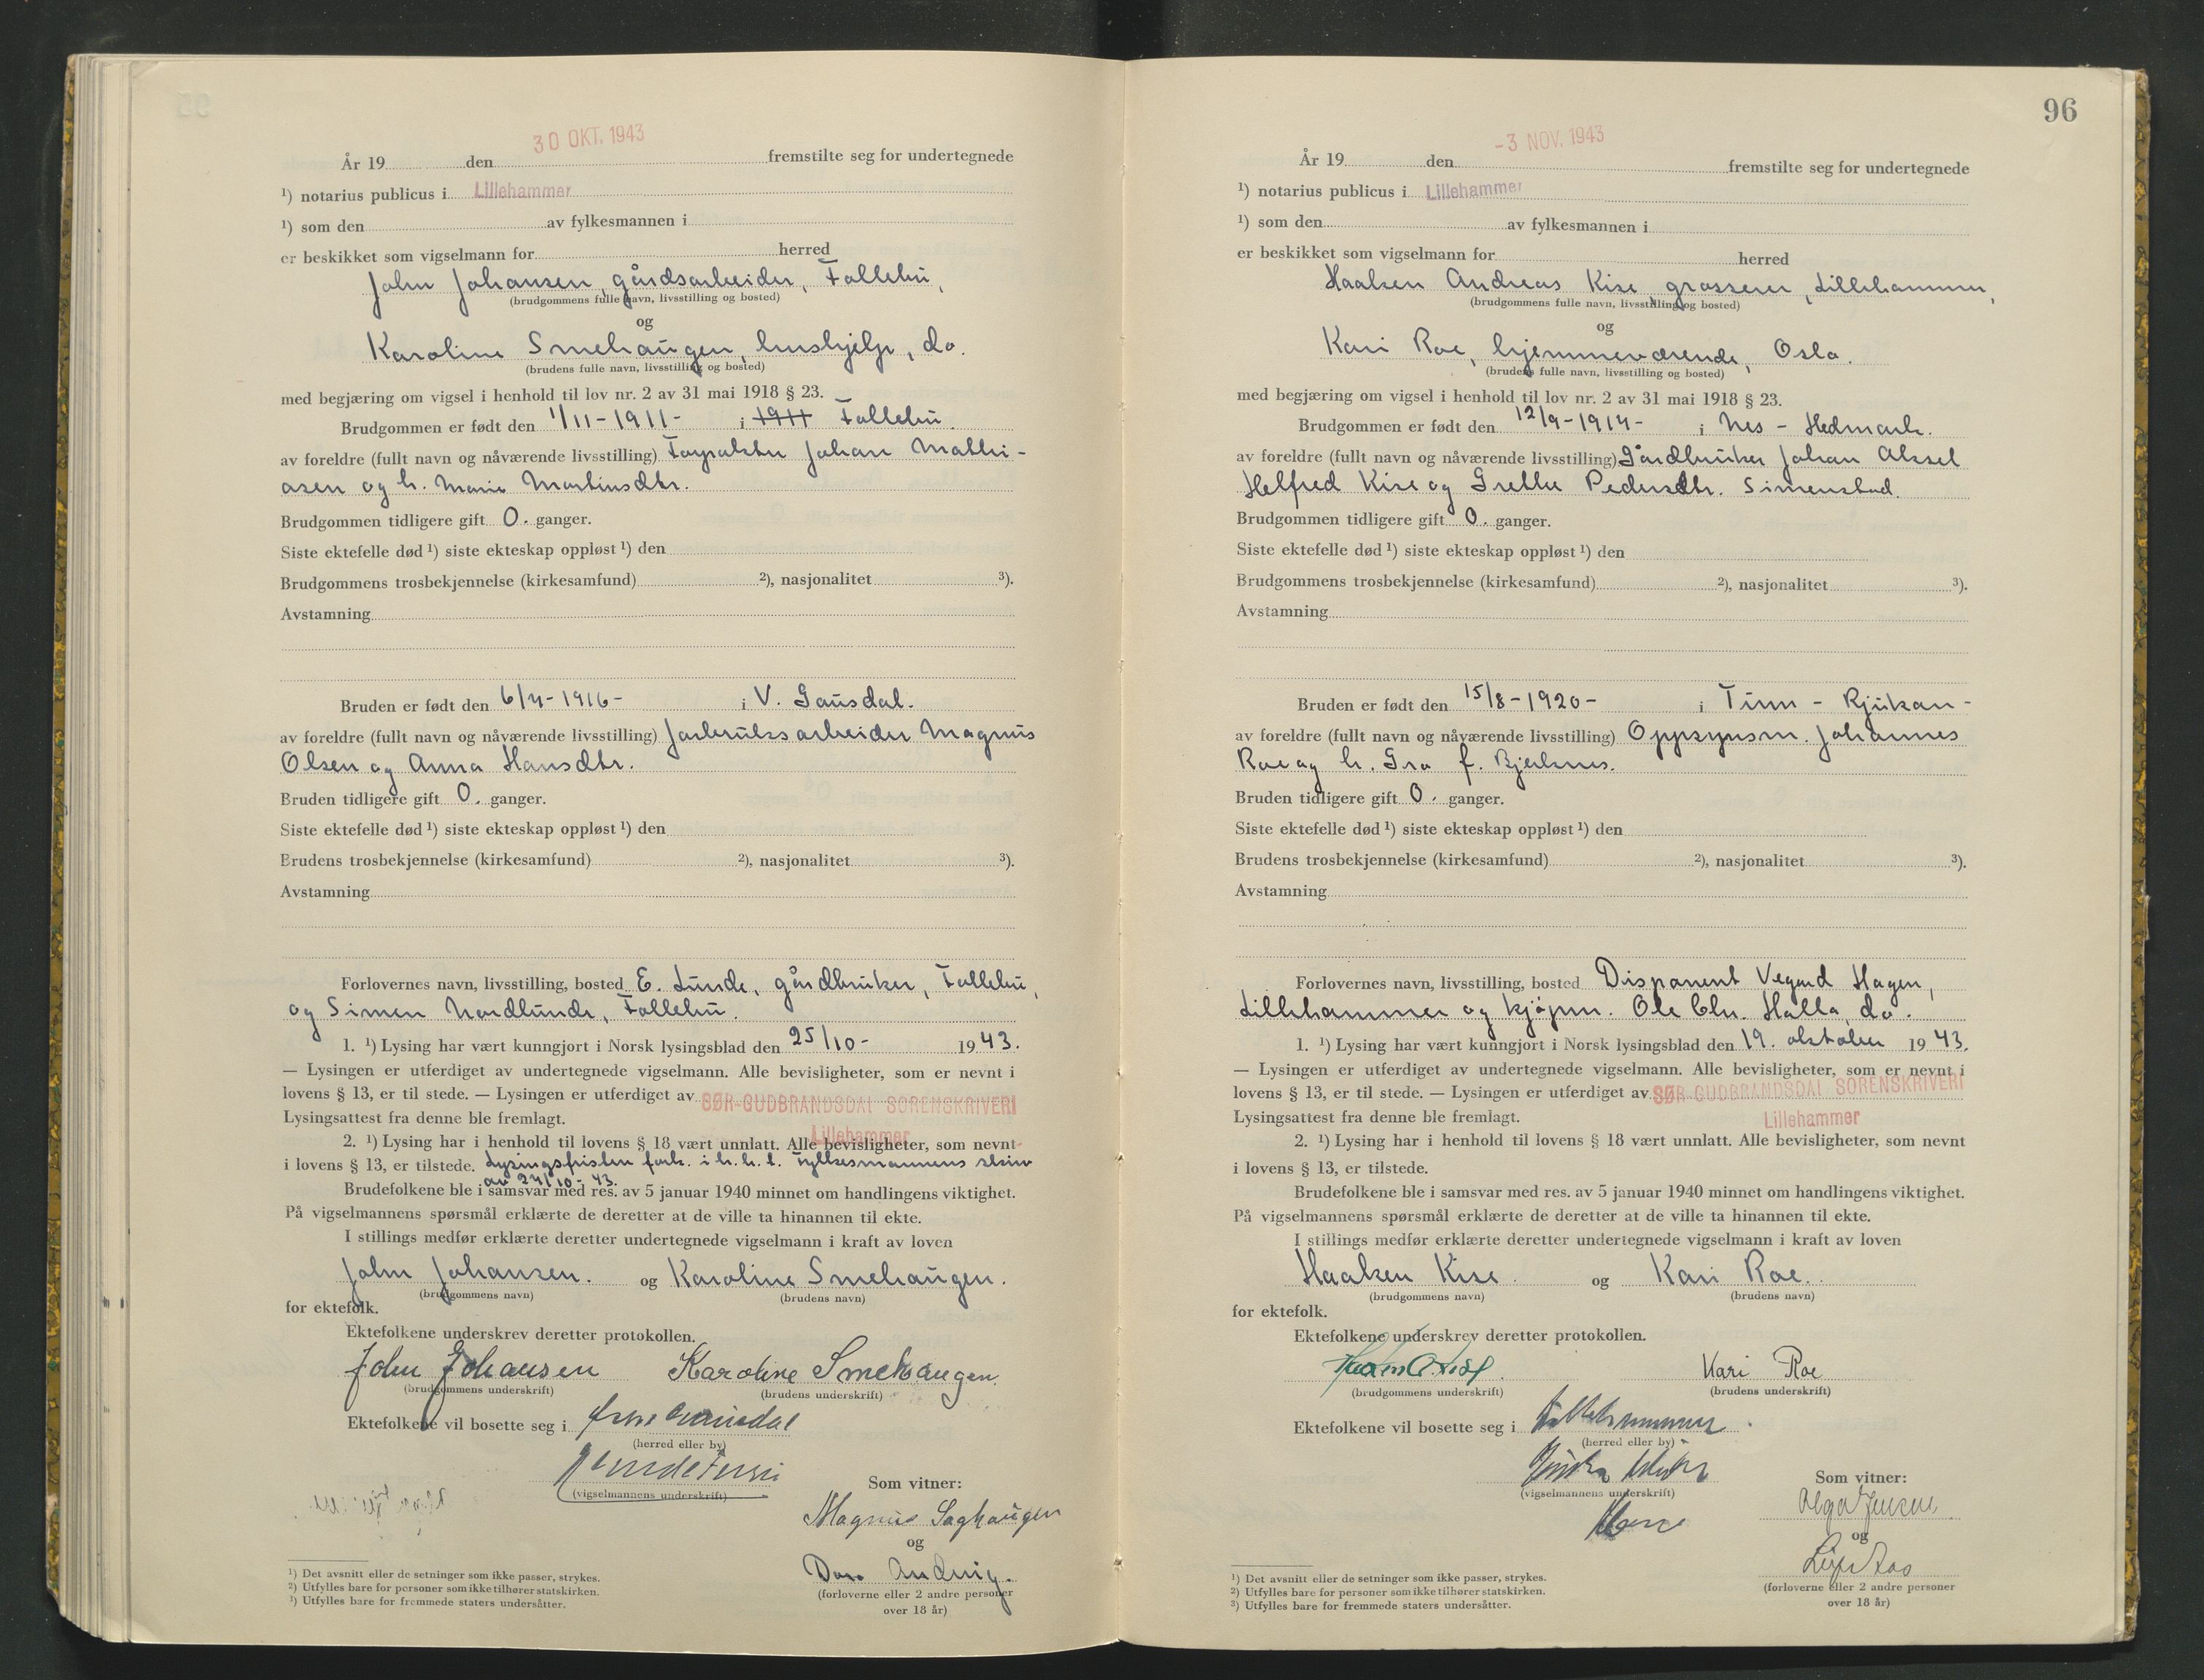 30 OKT. 1943
År 19 den fremstilte seg for undertegnede
¹) notarius publicus i Lillehammer
¹) som den av fylkesmannen i
er beskikket som vigselmann for herred
John Johansen, gårdsarbeider, Follebu,
(brudgommens fulle navn, livsstilling og bosted)
og
Karoline Smehaugen, hushjelp, do.
(brudens fulle navn, livsstilling og bosted)
med begjæring om vigsel i henhold til lov nr. 2 av 31 mai 1918 § 23.
Brudgommen er født den 1/11-1911- i 1911 Follebu.
av foreldre (fullt navn og nåværende livsstilling) Forpakter Johan Mathi-
asen og h. Marie Martinsdtr.
Brudgommen tidligere gift 0. ganger.
Siste ektefelle død ¹) siste ekteskap oppløst ¹) den
Brudgommens trosbekjennelse (kirkesamfund) ²), nasjonalitet ³).
Avstamning
Bruden er født den 6/4-1916- i V. Gausdal.
av foreldre (fullt navn og nåværende livsstilling) Jordbruksarbeider Magnus
Olsen og Anna Hansdtr.
Bruden tidligere gift 0. ganger.
Siste ektefelle død ¹) siste ekteskap oppløst ¹) den
Brudens trosbekjennelse (kirkesamfund) ²), nasjonalitet ³).
Avstamning
Forlovernes navn, livsstilling, bosted E. Lunde, gårdbruker, Follebu,
og Simen Nordlunde, Follebu.
1. ¹) Lysing har vært kunngjort i Norsk lysingsblad den 25/10- 1943.
— Lysingen er utferdiget av undertegnede vigselmann. Alle bevisligheter, som er nevnt i
lovens § 13, er til stede. — Lysingen er utferdiget av SØR-GUDBRANDSDAL SORENSKRIVERI
Lysingsattest fra denne ble fremlagt.
Lillehammer
2. ¹) Lysing har i henhold til lovens § 18 vært unnlatt. Alle bevisligheter, som nevnt
i lovens § 13, er tilstede. Lysingsfristen fork. i h. h. t. Fylkesmannens skriv
av 27/10-43.
Brudefolkene ble i samsvar med res. av 5 januar 1940 minnet om handlingens viktighet.
På vigselmannens spørsmål erklærte de deretter at de ville ta hinannen til ekte.
I stillings medfør erklærte deretter undertegnede vigselmann i kraft av loven
John Johansen. og Karoline Smehaugen.
(brudgommens navn) (brudens navn)
for ektefolk.
Ektefolkene underskrev deretter protokollen.
John Johansen Karoline Smehaugen.
(brudgommens underskrift) (brudens underskrift)
Ektefolkene vil bosette seg i
(herred eller by)
(vigselmannens underskrift)
Som vitner:
Magnus Saghaugen
og
(forloverne eller 2 andre personer
over 18 år)
¹) Det avsnitt eller de setninger som ikke passer, strykes.
²) Utfylles bare for personer som ikke tilhører statskirken.
³) Utfylles bare for fremmede staters undersåtter.
96
-3 NOV. 1943
År 19 den fremstilte seg for undertegnede
¹) notarius publicus i Lillehammer
¹) som den av fylkesmannen i
er beskikket som vigselmann for herred
Haaken Andreas Kise, grosserer, Lillehammer,
(brudgommens fulle navn, livsstilling og bosted)
og
Kari Roe, hjemmeværende, Oslo.
(brudens fulle navn, livsstilling og bosted)
med begjæring om vigsel i henhold til lov nr. 2 av 31 mai 1918 § 23.
Brudgommen er født den 12/9-1914- i Nes - Hedmark.
av foreldre (fullt navn og nåværende livsstilling) Gårdbruker Johan Aksel
Helfred Kise og Grethe Pedersdtr. Simenstad.
Brudgommen tidligere gift 0. ganger.
Siste ektefelle død ¹) siste ekteskap oppløst ¹) den
Brudgommens trosbekjennelse (kirkesamfund) ²), nasjonalitet ³).
Avstamning
Bruden er født den 15/8-1920- i Tinn - Rjukan -
av foreldre (fullt navn og nåværende livsstilling) Oppsynsm. Johannes
Roe og h. Gro f. Bjerknes.
Bruden tidligere gift 0. ganger.
Siste ektefelle død ¹) siste ekteskap oppløst ¹) den
Brudens trosbekjennelse (kirkesamfund) ²), nasjonalitet ³).
Avstamning
Forlovernes navn, livsstilling, bosted Disponent Vegard Hagen,
Lillehammer og kjøpm. Ole Chr. Halla, do.
1. ¹) Lysing har vært kunngjort i Norsk lysingsblad den 19. oktober 1943.
— Lysingen er utferdiget av undertegnede vigselmann. Alle bevisligheter, som er nevnt i
lovens § 13, er til stede. — Lysingen er utferdiget av SØR-GUDBRANDSDAL SORENSKRIVERI
Lysingsattest fra denne ble fremlagt. Lillehammer
2. ¹) Lysing har i henhold til lovens § 18 vært unnlatt. Alle bevisligheter, som nevnt
i lovens § 13, er tilstede.
Brudefolkene ble i samsvar med res. av 5 januar 1940 minnet om handlingens viktighet.
På vigselmannens spørsmål erklærte de deretter at de ville ta hinannen til ekte.
I stillings medfør erklærte deretter undertegnede vigselmann i kraft av loven
Haaken Kise. og Kari Roe.
(brudgommens navn) (brudens navn)
for ektefolk.
Ektefolkene underskrev deretter protokollen.
Kari Roe
(brudgommens underskrift) (brudens underskrift)
Ektefolkene vil bosette seg i Lillehammer
(herred eller by)
(vigselmannens underskrift)
Som vitner:
Olga Jensen
og
(forloverne eller 2 andre personer
over 18 år)
¹) Det avsnitt eller de setninger som ikke passer, strykes.
²) Utfylles bare for personer som ikke tilhører statskirken.
³) Utfylles bare for fremmede staters undersåtter.